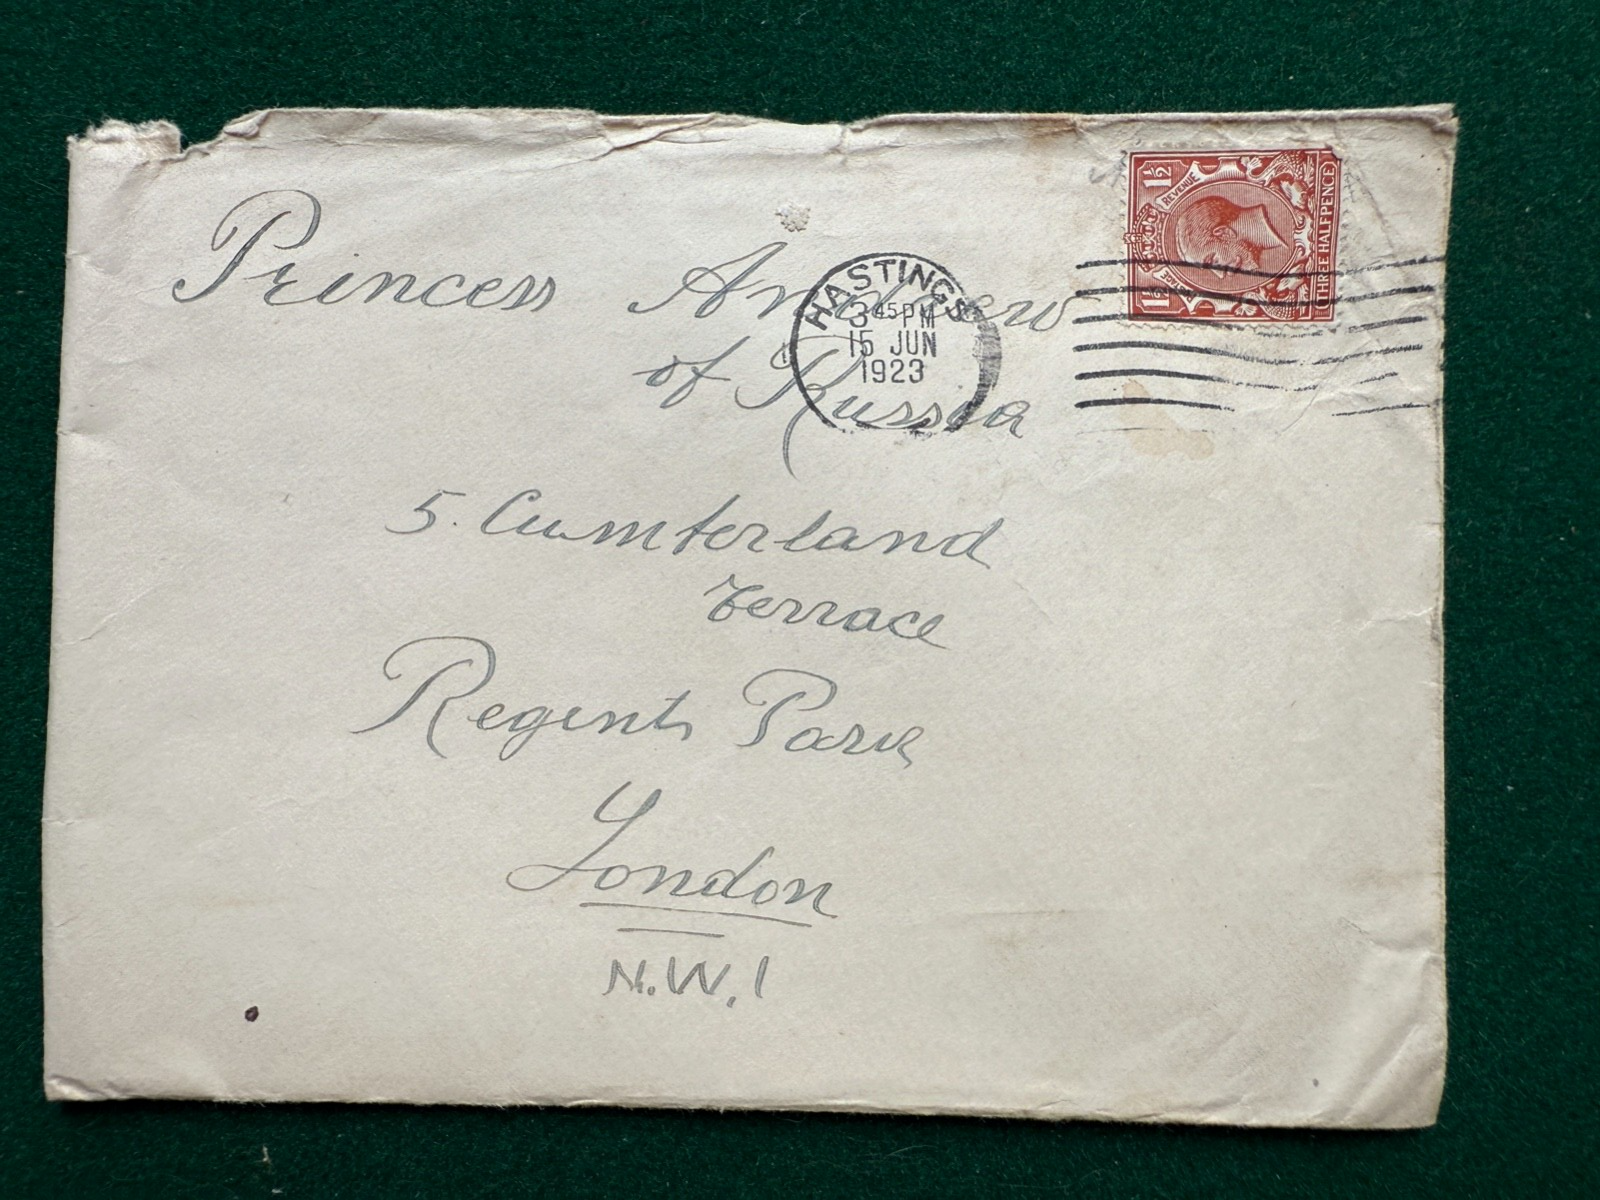 Princess Andrew
of Russia
5. Cumberland
Terrace
Regents Park
London
N.W.1
HASTINGS
3 45 PM
15 JUN
1923
POSTAGE
REVENUE
1½
1½
THREE HALFPENCE